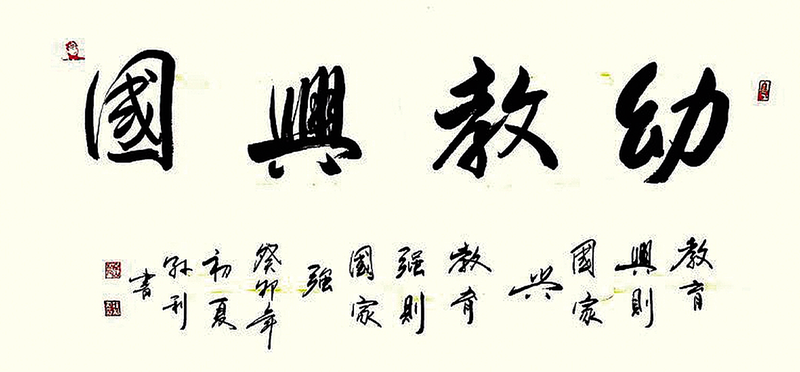 幼教興國
教育
興則
國家
兴
教育
强則
國家
强
癸卯年
初夏
利
書